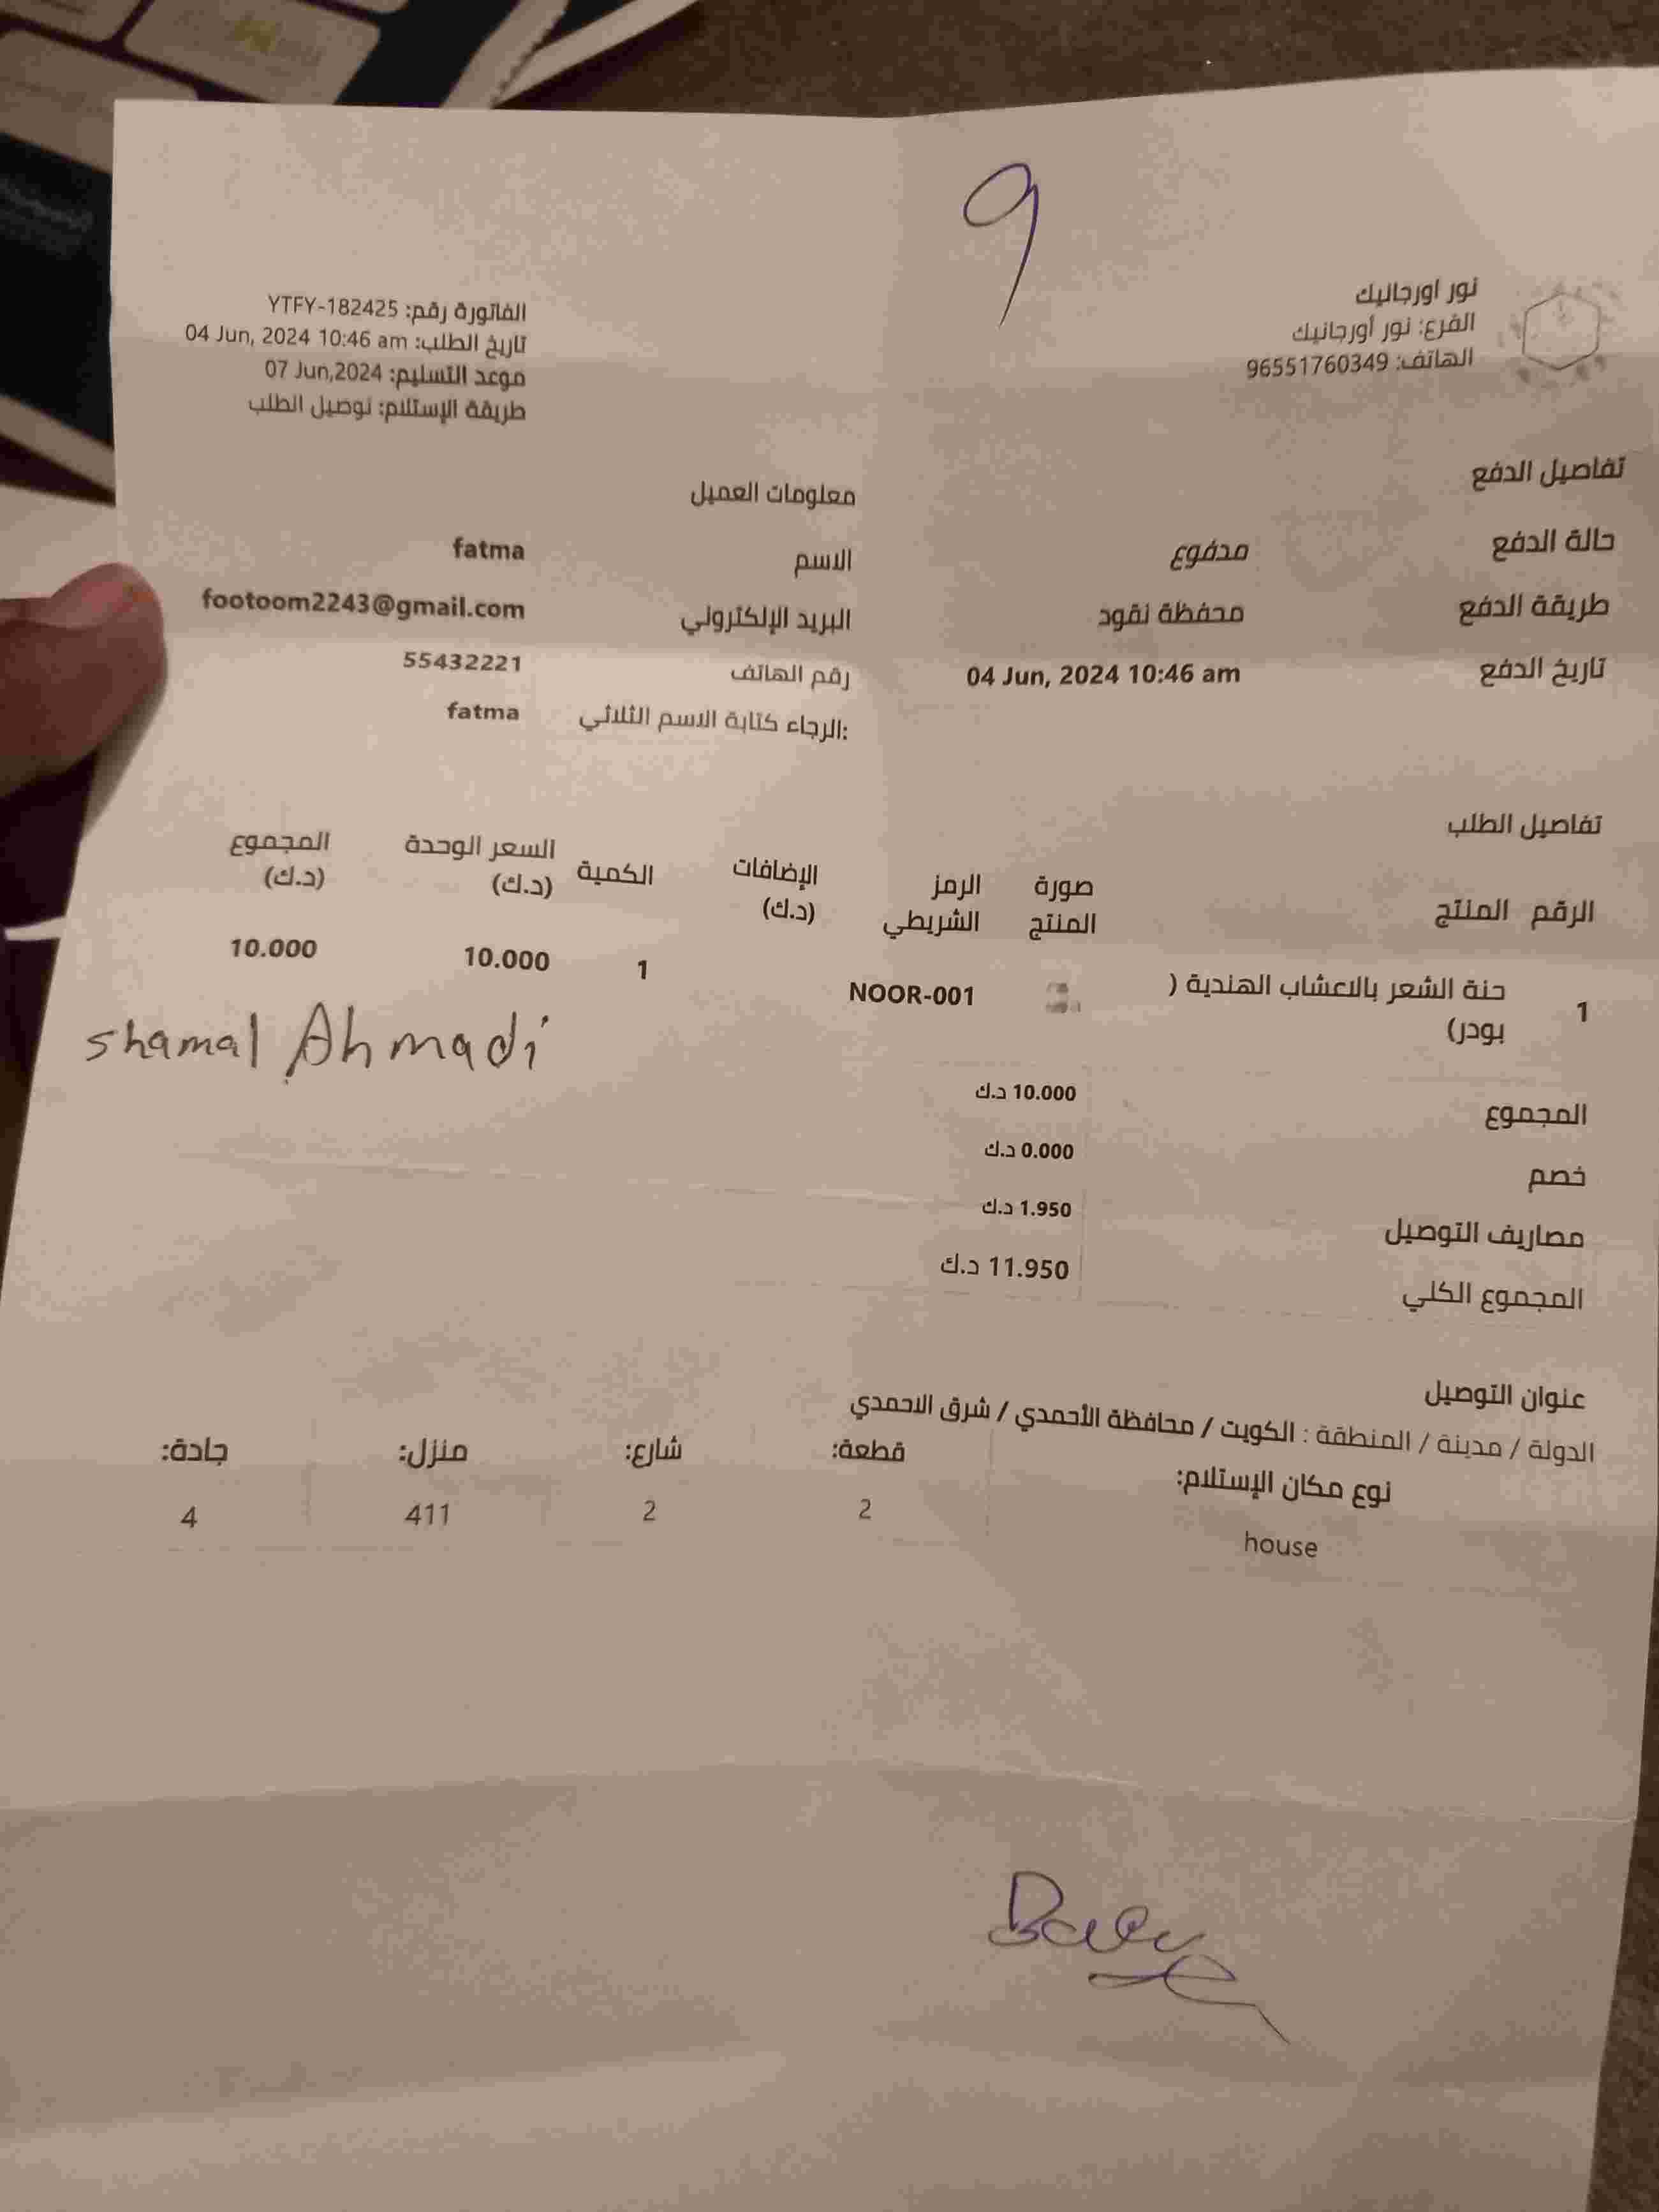 9
نور اورجانيك
الفرع: نور أورجانيك
الهاتف: 96551760349
الفاتورة رقم: YTFY-182425
تاريخ الطلب: 04 Jun, 2024 10:46 am
موعد التسليم: 07 Jun,2024
طريقة الإستلام: توصيل الطلب
تفاصيل الدفع
حالة الدفع مدفوع
طريقة الدفع محفظة نقود
تاريخ الدفع 04 Jun, 2024 10:46 am
معلومات العميل
الاسم fatma
البريد الإلكتروني footoom2243@gmail.com
رقم الهاتف 55432221
:الرجاء كتابة الاسم الثلاثي fatma
تفاصيل الطلب
الرقم المنتج صورة المنتج الرمز الشريطي الإضافات (د.ك) الكمية السعر الوحدة (د.ك) المجموع (د.ك)
1 حنة الشعر بالاعشاب الهندية ( بودر) NOOR-001 1 10.000 10.000
shamal Ahmadi
المجموع 10.000 د.ك
خصم 0.000 د.ك
مصاريف التوصيل 1.950 د.ك
المجموع الكلي 11.950 د.ك
عنوان التوصيل
الدولة / مدينة / المنطقة : الكويت / محافظة الأحمدي / شرق الاحمدي
نوع مكان الإستلام: قطعة: شارع: منزل: جادة:
house 2 2 411 4